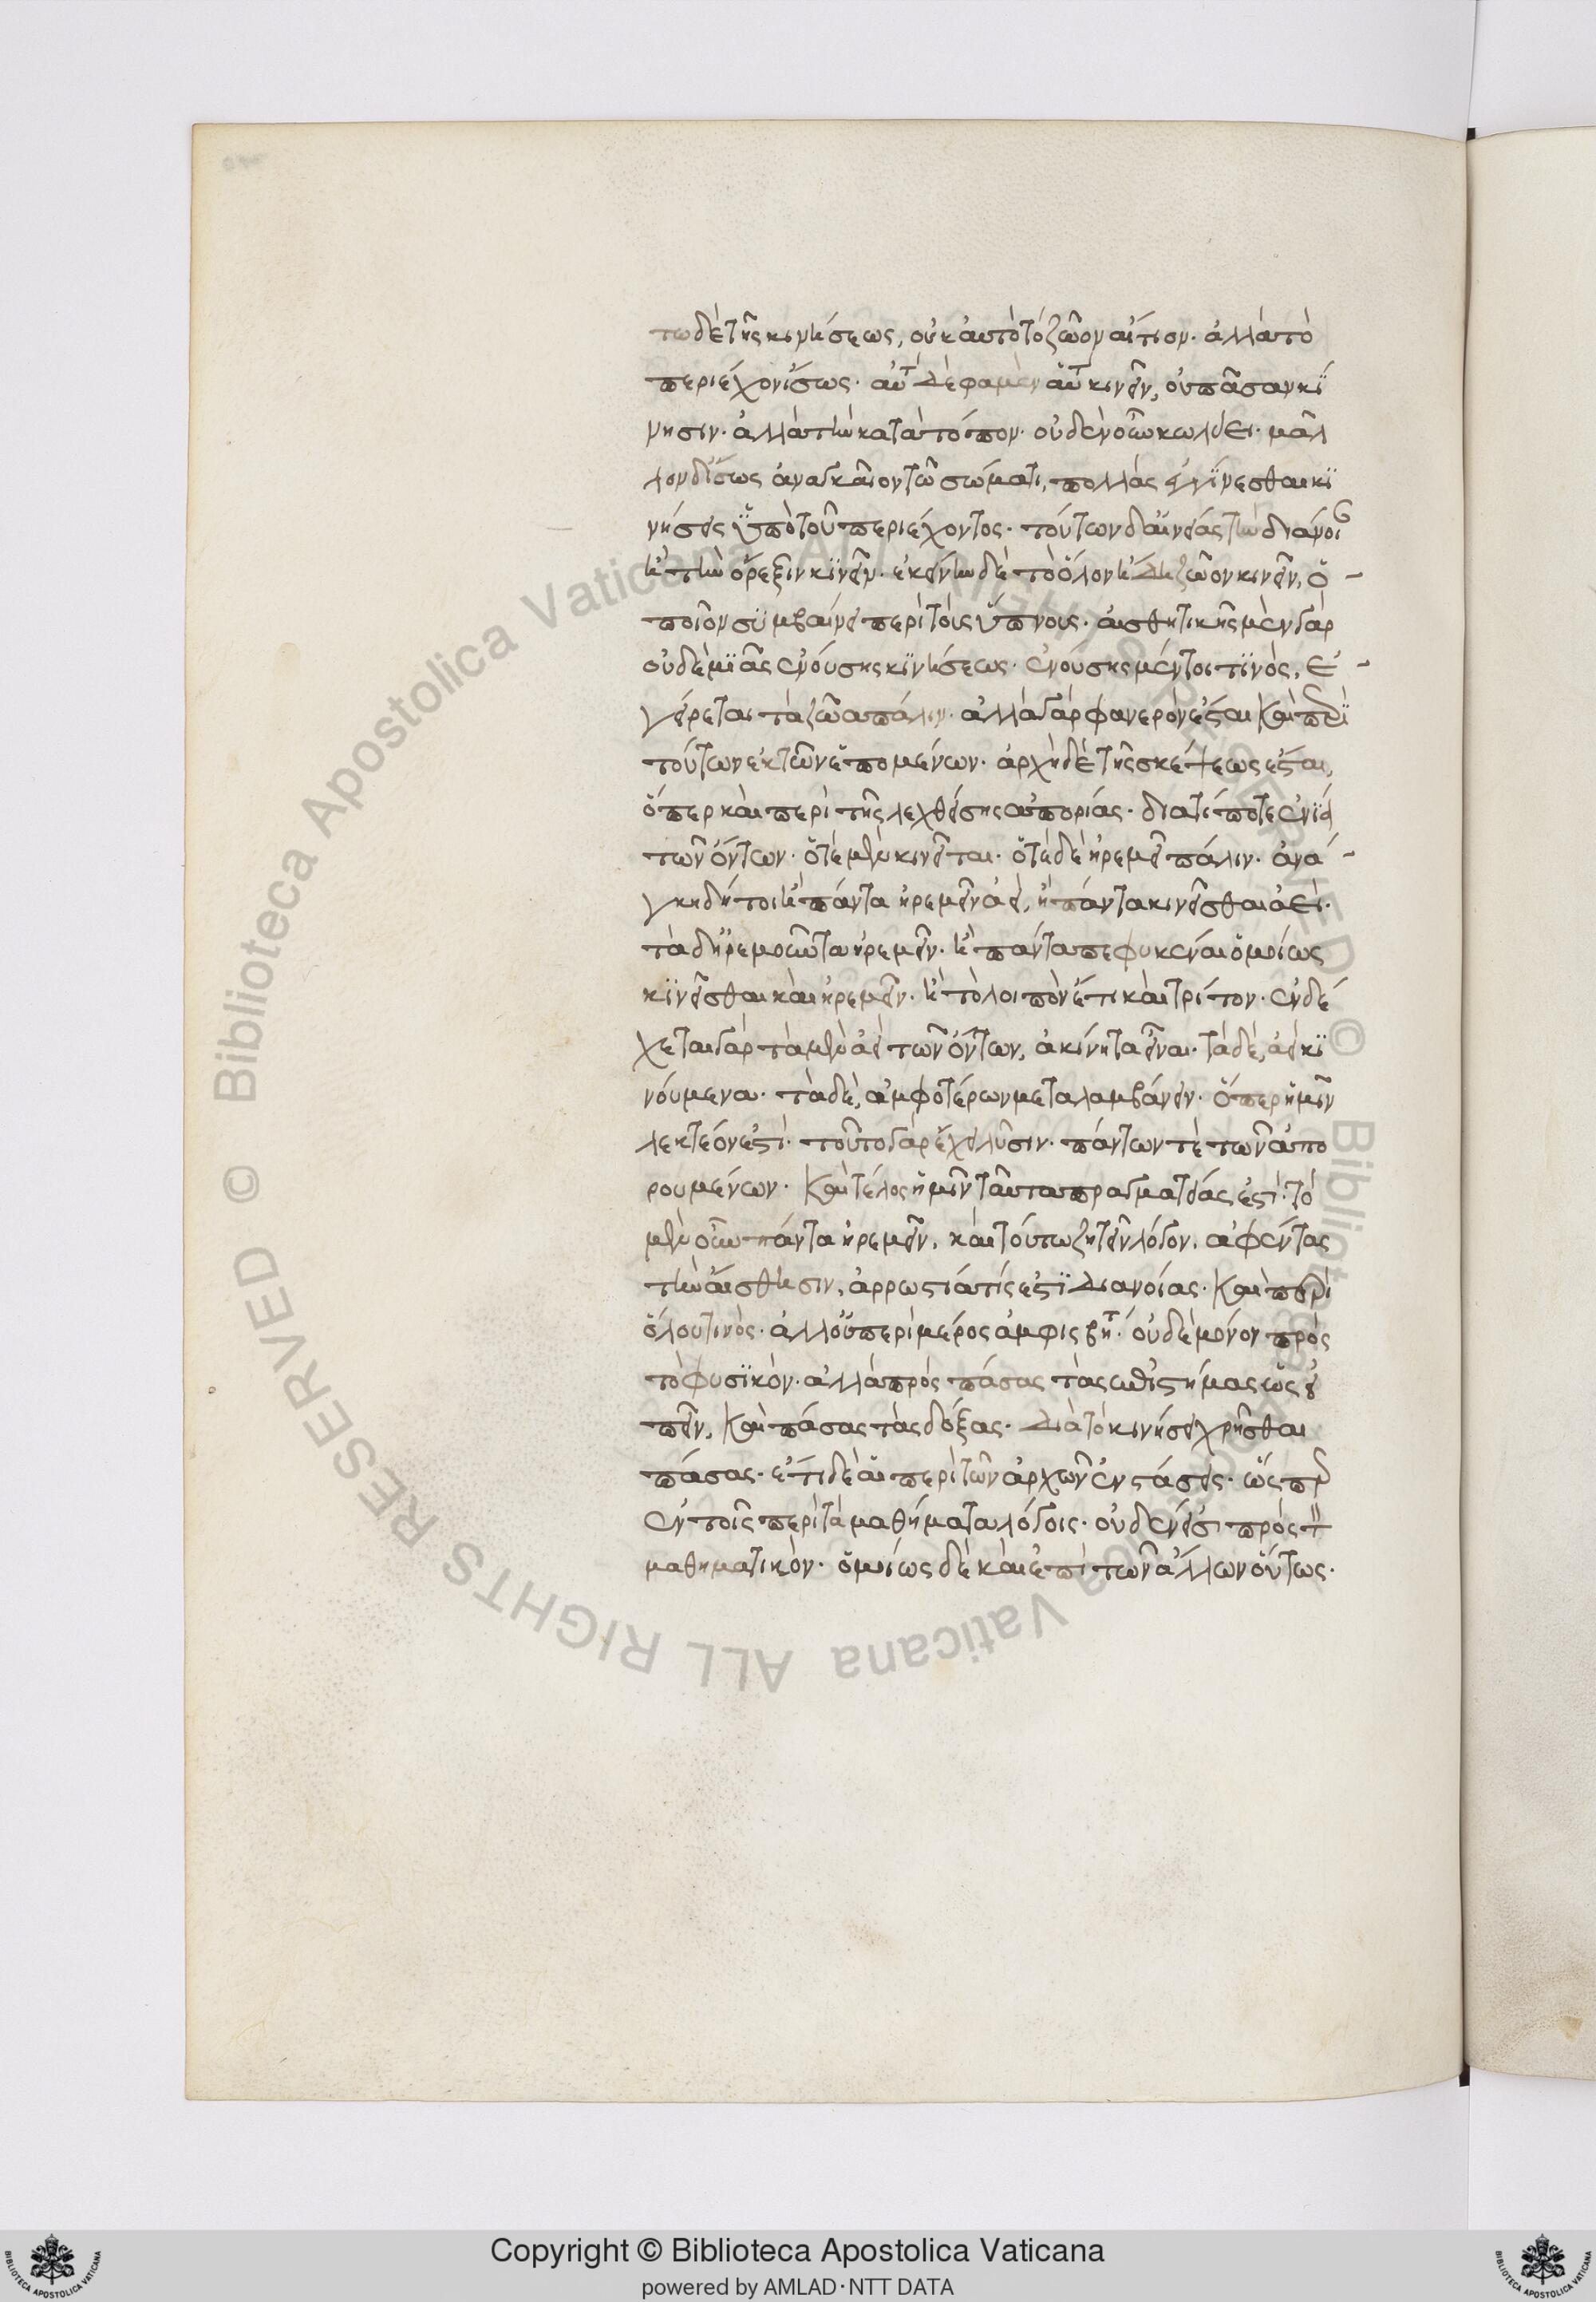 τω δὲ τῆς κινήσεως, οὐκ αὐτὸ τὸ ζῶον αἴτιον· ἀλλὰ τὸ
περιέχον ἴσως· αὐτ δέ φαμεν αὑτ κινεῖν, οὐ πᾶσαν κί
νησιν· ἀλλὰ τὴν κατὰ τόπον· οὐδὲν οὖν κωλύει· μᾶλ
λον δ' ἴσως ἀναγκαῖον τῶ σώματι, πολλὰς ἐγγίνεσθαι κι
νήσεις ὑπὸ τοῦ περιέχοντος· τούτων δ' ἐνίας τὴν διάνοι
ἢ τὴν ὄρεξιν κινεῖν· ἐκείνην δὲ τὸ ὅλον ἤδη ζῶον κινεῖν, ὃ
ποῖον συμβαίνει περὶ τοὺς ὕπνους· αἰσθητικῆς μὲν γὰρ
οὐδεμιᾶς ἐνούσης κινήσεως· ἐνούσης μέντοι τινὸς, ἐ
γείρεται τὰ ζῶα πάλιν· ἀλλὰ γὰρ φανερὸν ἔσται καὶ περὶ
τούτων ἐκ τῶν ἑπομένων· ἀρχὴ δὲ τῆς σκέψεως ἔσται,
ὅπερ καὶ περὶ τῆς λεχθείσης ἀπορίας· διατί ποτε ἔνια
τῶν ὄντων· ὁτὲ μὲν κινεῖται· ὁτὲ δὲ ἠρεμεῖ πάλιν· ἀνά
γκη δή τοι ἢ πάντα ἠρεμεῖν ἀεὶ, ἢ πάντα κινεῖσθαι ἀεὶ·
τὰ δ' ἠρεμοῦντα ἠρεμεῖν· ἢ πάντα πεφυκέναι ὁμοίως
κινεῖσθαι καὶ ἠρεμεῖν· ἢ τὸ λοιπὸν ἔτι καὶ τρίτον· ἐνδέ
χεται γὰρ τὰ μὲν ἀεὶ τῶν ὄντων, ἀκίνητα εἶναι· τὰ δὲ, ἀεὶ κι
νούμενα· τὰ δὲ, ἀμφοτέρων μεταλαμβάνειν· ὅπερ ἡμῖν
λεκτέον ἐστί· τοῦτο γὰρ ἔχει λύσιν· πάντων τὲ τῶν ἀπο
ρουμένων· καὶ τέλος ἡμῖν ταύτης πραγματείας ἐστί· τὸ
μὲν οὖν πάντα ἠρεμεῖν, καὶ τούτω ζητεῖν λόγον, ἀφέντας
τὴν αἴσθησιν, ἀρρωστία τίς ἐστι διανοίας· καὶ περὶ
ὅλου τινὸς· ἀλλ' οὐ περὶ μέρος ἀμφισβητ· οὐδὲ μόνον πρὸς
τὸ φυσικὸν· ἀλλὰ πρὸς πάσας τὰς ἐπιστήμας ὡς εἰ
πεῖν, καὶ πάσας τὰς δόξας· διὰ τὸ κινήσει χρῆσθαι
πάσας· ἔτι δὲ αἱ περὶ τῶν ἀρχῶν ἐνστάσεις· ὥσπερ
ἐν τοῖς περὶ τὰ μαθήματα λόγοις· οὐδέν εἰσι πρὸς τὸν
μαθηματικὸν· ὁμοίως δὲ καὶ ἐπὶ τῶν ἄλλων οὕτως·
Copyright © Biblioteca Apostolica Vaticana
powered by AMLAD · NTT DATA
© Biblioteca Apostolica Vaticana ALL RIGHTS RESERVED © Biblioteca Apostolica Vaticana ALL RIGHTS RESERVED